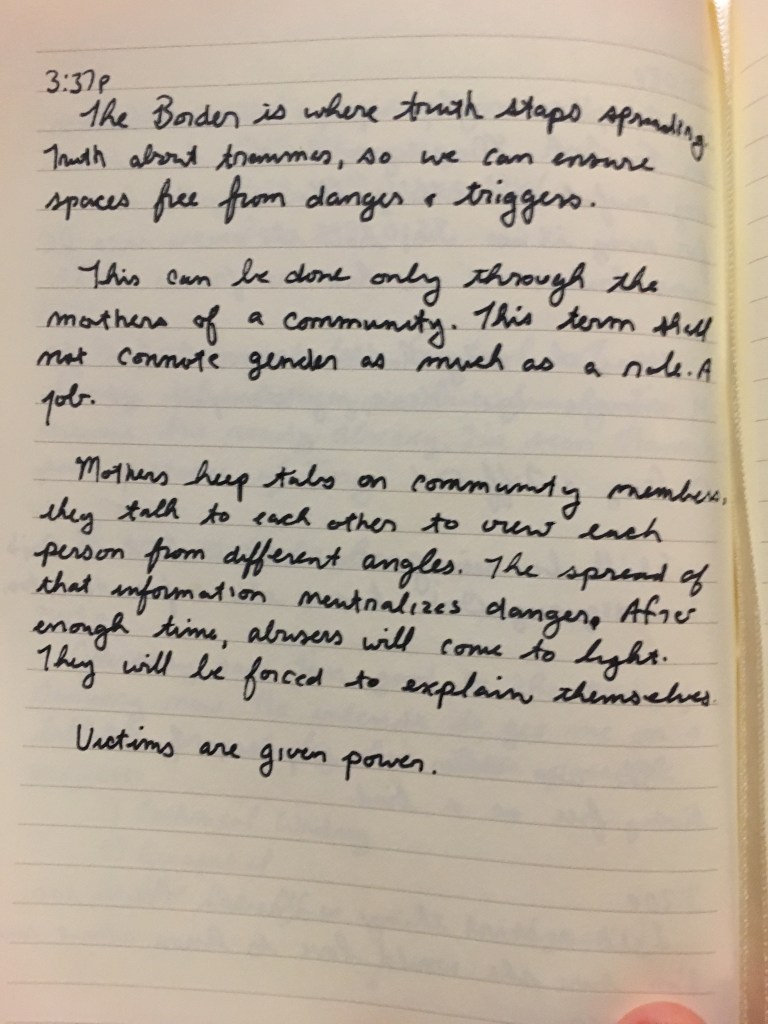 3:37p
The Border is where truth stops spreading.
Truth about traumas, so we can ensure
spaces free from danger & triggers.
This can be done only through the
mothers of a community. This term shall
not connote gender as much as a role. A
job.
Mothers keep tabs on community members,
they talk to each other to view each
person from different angles. The spread of
that information neutralizes danger. After
enough time, abusers will come to light.
They will be forced to explain themselves.
Victims are given power.